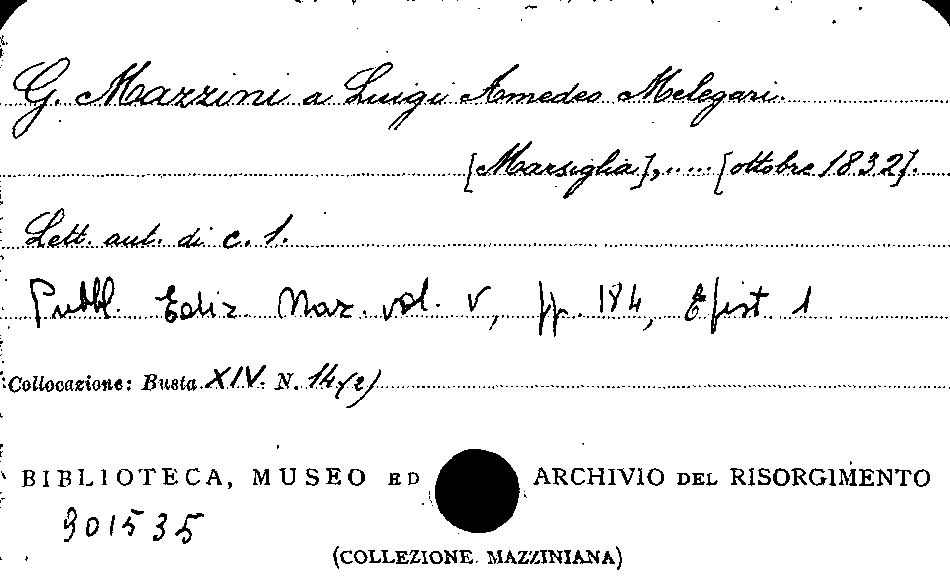 G. Mazzini a Luigi Amedeo Melegari.
[Marsiglia],..... [ottobre 1832].
Lett. aut. di c. 1.
Pubbl. Ediz. Naz. vol. V, pp. 184, Epist. 1
Collocazione: Busta XIV. N. 14(2)
BIBLIOTECA, MUSEO ED ARCHIVIO DEL RISORGIMENTO
901535
(COLLEZIONE MAZZINIANA)